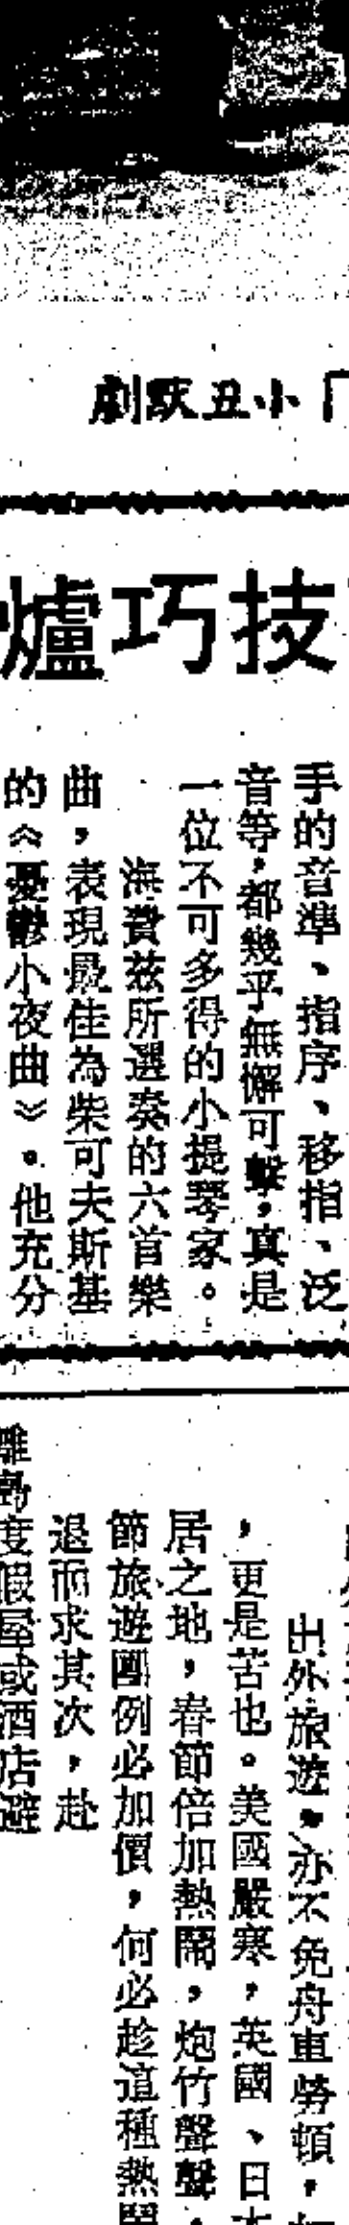 「小丑默劇
技巧爐
手的音準、指序、移指、泛
音等，都幾乎無懈可擊，真是
一位不可多得的小提琴家。
海費茲所選奏的六首樂
曲，表現最佳為柴可夫斯基
的《憂鬱小夜曲》。他充分
出外旅遊，亦不免舟車勞頓，
，更是苦也。美國嚴寒，英國、日本
居之地，春節倍加熱鬧，炮竹聲聲，
節旅遊團例必加價，何必趁這種熱鬧
退而求其次，赴
離島度假屋或酒店避